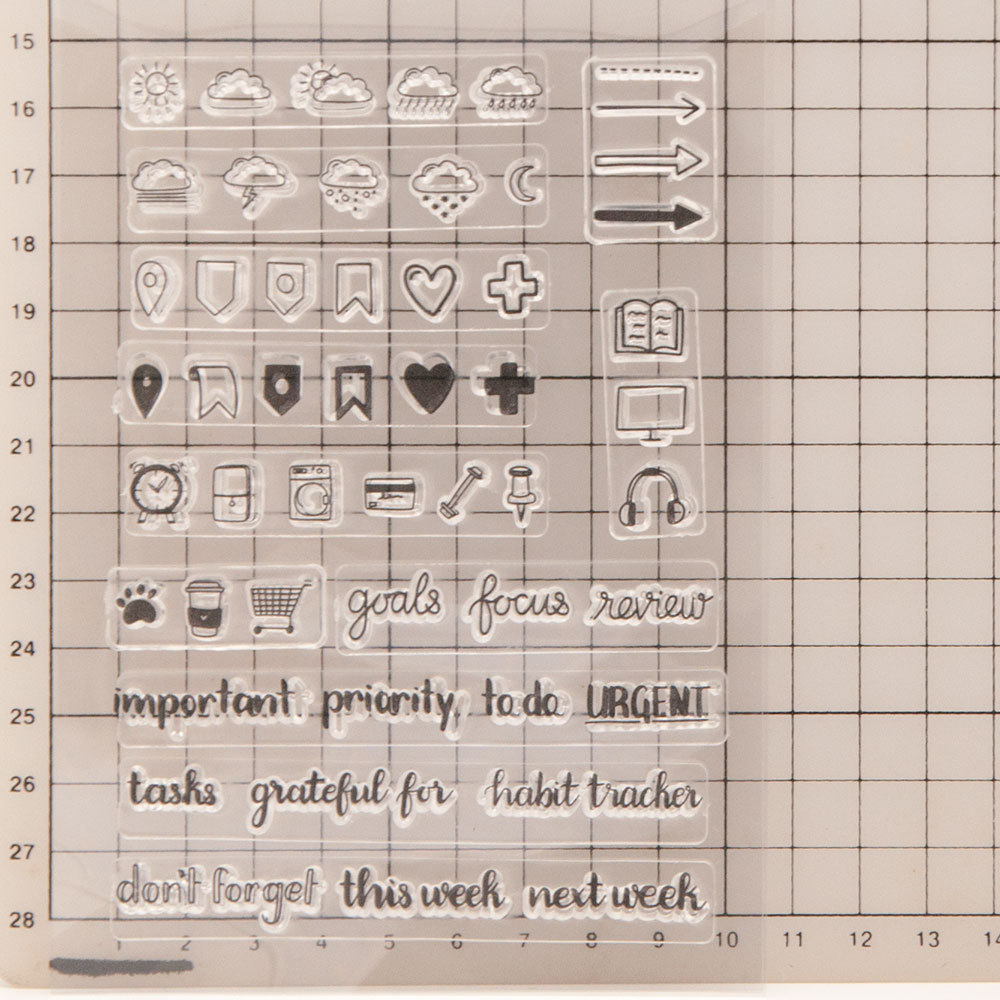 15
16
17
18
19
20
21
22
23
goals focus review
24
important priority, to do URGENT
25
26
tasks grateful for habit tracker
27
don't forget this week next week
28
1 2 3 4 5 6 7 8 9 10 11 12 13 14